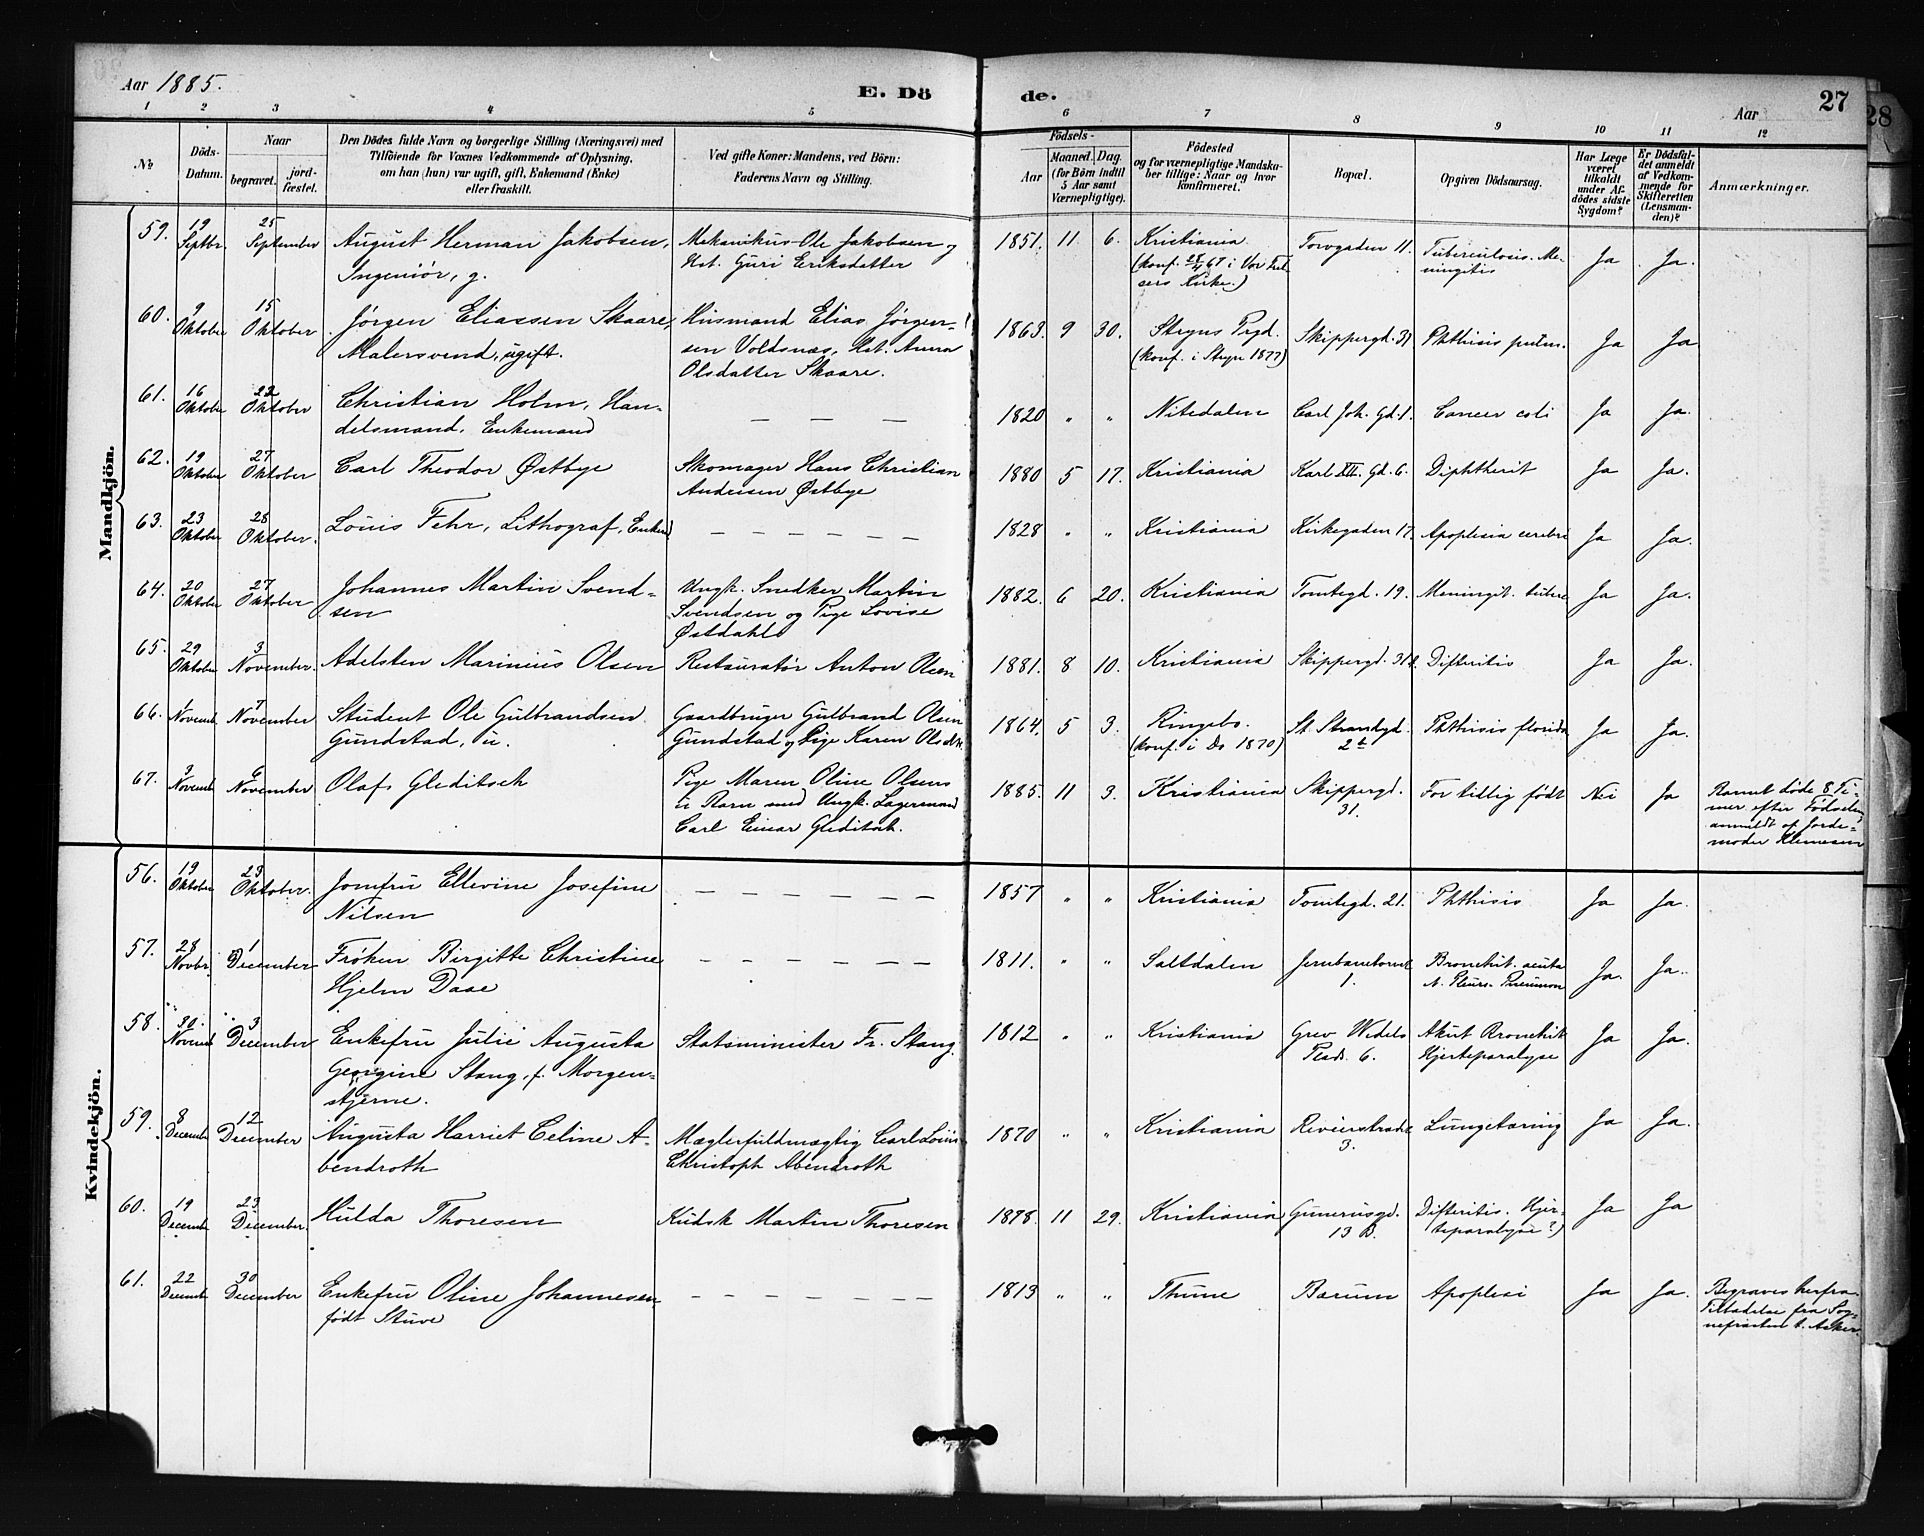 Aar 1885.
E. Dö
de.
Aar
27
28
1 2 3 4 5 6 7 8 9 10 11 12
No
Döds-Datum.
Naar
begravet.
jord-fæstet.
Den Dödes fulde Navn og borgerlige Stilling (Næringsvei) med
Tilföiende for Voxnes Vedkommende af Oplysning,
om han (hun) var ugift, gift, Enkemand (Enke)
eller fraskilt.
Ved gifte Koner: Mandens, ved Börn:
Faderens Navn og Stilling.
Födsels-
Aar
Maaned.
Dag.
(for Börn indtil
5 Aar samt
Værnepligtige).
Födested
og for værnepligtige Mandska-
ber tillige: Naar og hvor
konfirmeret.
Bopæl.
Opgiven Dödsaarsag.
Har Læge
været
tilkaldt
under Af-
dödes sidste
Sygdom?
Er Dödsfal-
det anmeldt
af Vedkom-
mende for
Skifteretten
(Lensman-
den)?
Anmærkninger.
Mandkjön.
59. 19 Septbr. 25 September August Herman Jakobsen, Mekanikus Ole Jakobsen og 1851. 11 6. Kristiania Torvgaden 11. Tuberculosis. Me- Ja Ja.
Ingeniør, g. Hst. Guri Eriksdatter (konf. 28/4 67 i Vor Frel- ningitis
sers Kirke.)
60. 9 Oktober 15 Oktober Jørgen Eliassen Skaare, Husmand Elias Jørgen- 1863. 9 30. Stryns Prgd. Skippergd. 31 Phthisis pulm. Ja Ja
Malersvend, ugift. sen Voldsnæs, Hst. Anna (konf. i Stryn 1877)
Olsdatter Skaare.
61. 16 Oktober 22 Oktober Christian Holm, Han- — — — 1820 " " Nitedalen Carl Joh. Gd. 1. Cancer coli Ja Ja.
delsmand, Enkemand
62. 19 Oktober 27 Oktober Carl Theodor Østbye Skomager Hans Christian 1880 5 17. Kristiania Karl XII. Gd. 6. Diphtherit Ja Ja.
Andresen Østbye
63. 23 Oktober 28 Oktober. Louis Fehr, Lithograf, Enkem — — — — — — 1828 " " Kristiania Kirkegaden 17. Apoplexia cerebri Ja Ja.
64. 20 Oktober 27 Oktober Johannes Martin Svend- Ungk. Snedker Martin 1882. 6 20. Kristiania Tomtegd. 19. Meningit. tuberc Ja Ja.
sen Svendsen og Pige Lovise
Østdahl
65. 29 Oktober 3 November. Adelsten Marinius Olsen Restauratør Anton Olsen 1881. 8 10. Kristiania Skippergd. 31 Difteritis Ja Ja.
66. 1 Novemb. 7 November Student Ole Gulbrandsen Gaardbruger Gulbrand Olsen 1864. 5 3. Ringebo. St. Strandgd. Phthisis florida Ja Ja.
Gundstad, u. Gundstad og Pige Karen Olsdtr. (konf. i Do 1870) 2
67. 3 Novemb 6 November Olaf Gleditsch Pige Maren Oline Olsens 1885. 11 3. Kristiania Skippergd. For tidlig født Nei Ja Barnet døde 8 Ti-
Barn med Ungk. Lagermand 31. mer efter Fødselen
Carl Einar Gleditsch. anmeldt af Jorde-
moder Klemesen
Kvindekjön.
56. 19 Oktober 23 Oktober. Jomfru Ellevine Josefine — — — — — — 1857 " " Kristiania Tomtegd. 21. Phthisis Ja Ja.
Nilsen
57. 28 Novbr. 1 December Frøken Birgitte Christine — — — — — — 1811. " " Saltdalen Jernbanetorvet Bronchit. acuta Ja. Ja.
Hjelm Daae 1. Pleuro-Pneumon
58. 30. Novemb 3 December Enkefru Julie Augusta Statsminister Fr. Stang. 1812 " " Kristiania Grev Wedels Akut Bronchit Ja Ja.
Georgine Stang, f. Morgen- Plads 6. Hjerteparalyse
stjerne.
59. 8 Decemb 12 December Augusta Harriet Celine A- Mæglerfuldmægtig Carl Louis 1870 " " Kristiania Revierstræde Lungetæring Ja Ja.
bendroth Christoph Abendroth 3.
60. 19 Decemb 23 December. Hulda Thoresen Kudsk Martin Thoresen 1878. 11 29. Kristiania Gunerusgd. Difteritis. Hjer- Ja Ja
13 B. teparalyse?)
61. 22 Decemb 30 December Enkefru Oline Johannesen — — — — — — — 1813 " " Thune Bærum Apoplexi Ja Ja. Begraves herfra.
født Stuve Tilladelse fra Sog-
nepræsten t. Asker